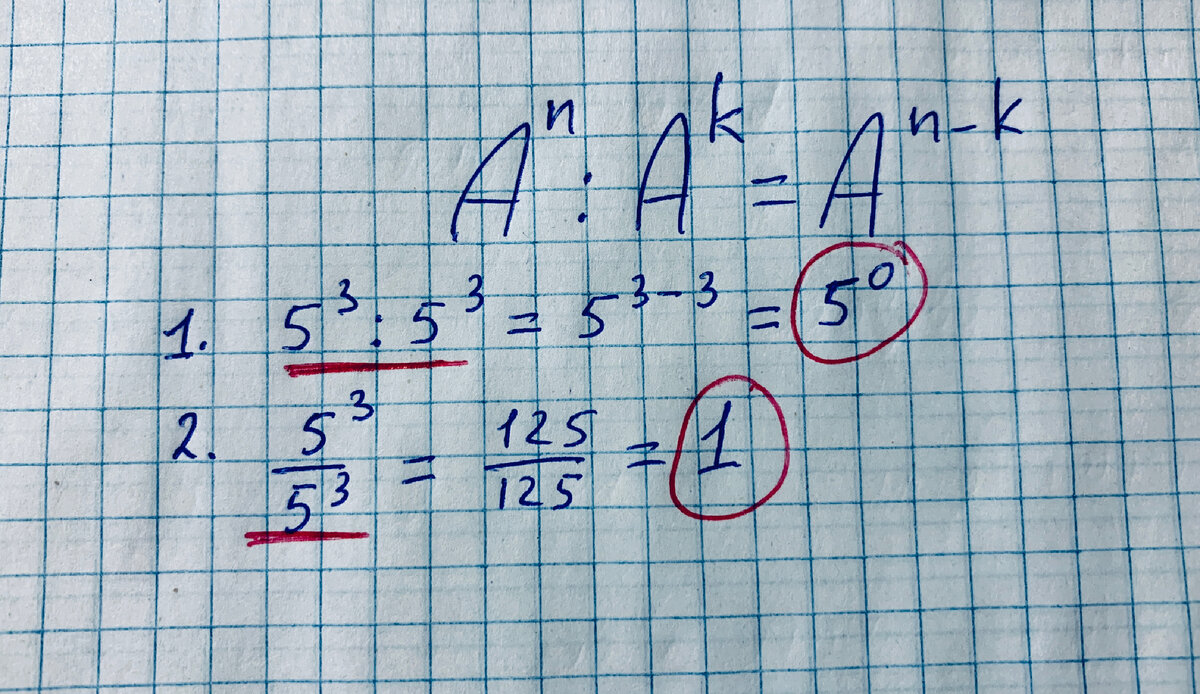 Aⁿ : Aᵏ = Aⁿ⁻ᵏ
1. 5³ : 5³ = 5³⁻³ = 5⁰
2. 5³/5³ = 125/125 = 1